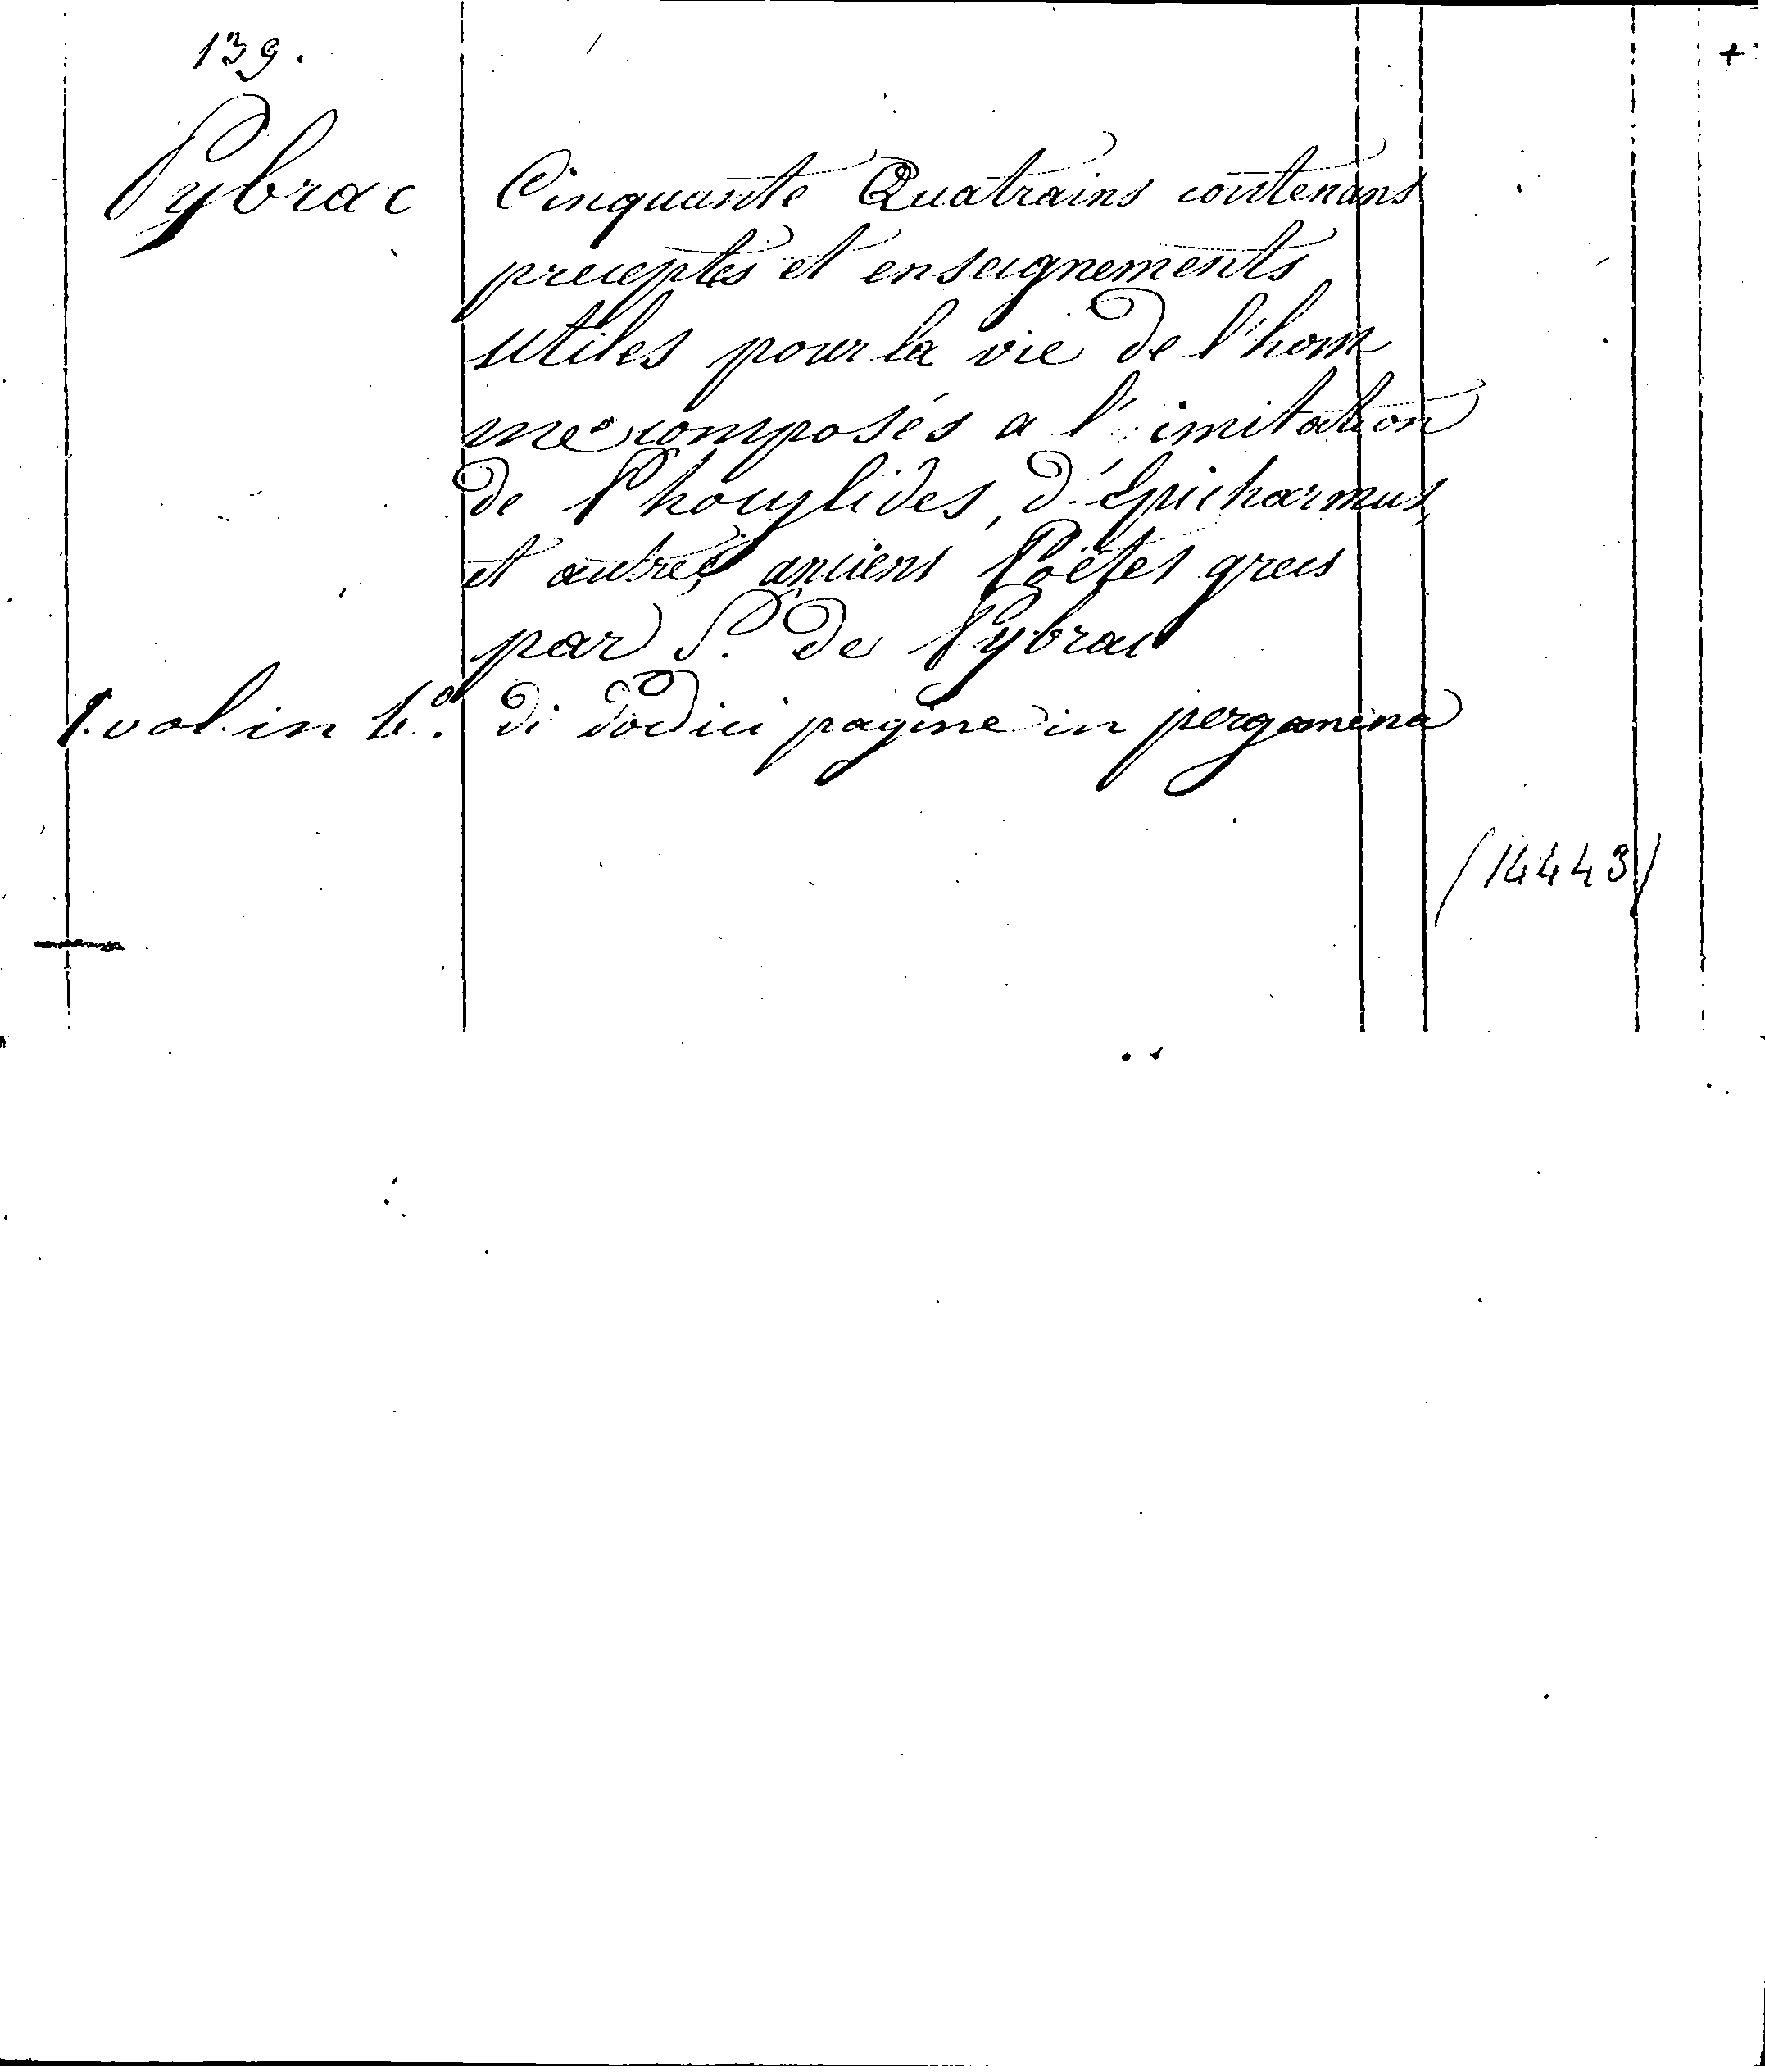 139.
Pybrac Cinquante Quatrains contenans
preceptes et enseignements
utiles pour la vie de l'hom
me composés a l'imitation
de Phocylides, d'Epicharmus,
et autres anciens Poëtes grecs
par S.r de Pybrac
1. vol. in 4.º di dodici pagine in pergamena
(14443)